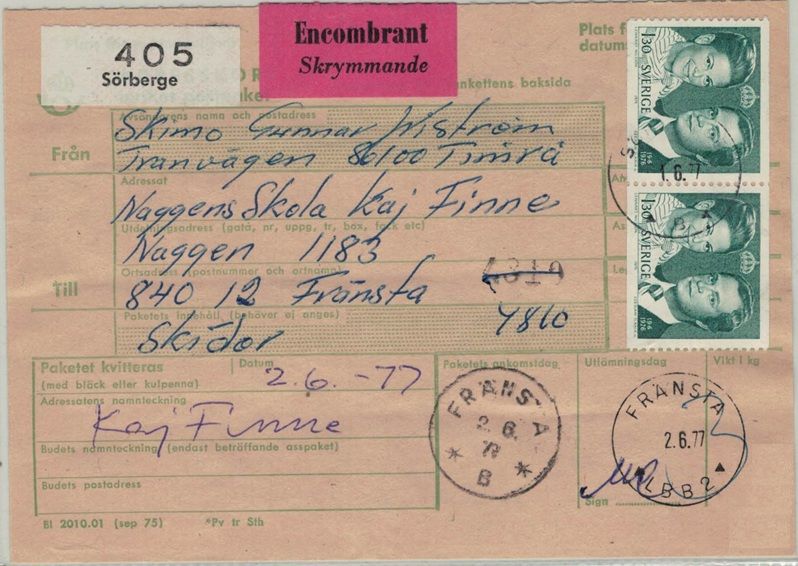 405
Sörberge
Encombrant
Skrymmande
Plats f
datums
kettens baksida
1.30 SVERIGE
19 6/6 1976
Från
Avsändarens namn och postadress
Skimo Gunnar Wiström
Tranvägen 86100 Timrå
Adressat
Naggens Skola Kaj Finne
Utdelningsadress (gata, nr, uppg, tr, box, fack etc)
Naggen 1183
Till
Ortsadress (postnummer och ortnamn)
4319
840 12 Fränsta
Paketets innehåll (behöver ej anges)
4810
Skidor
1.6.77
B
1.30 SVERIGE
19 6/6 1976
Paketet kvitteras
(med bläck eller kulpenna)
Datum
2.6.-77
Adressatens namnteckning
Kaj Finne
Budets namnteckning (endast beträffande asspaket)
Budets postadress
Paketets ankomstdag
FRÄNSTA
2.6.
77
* B *
Utlämningsdag
Vikt i kg
FRÄNSTA
2.6.77
LBB2
Sign
Bl 2010.01 (sep 75)
*Pv tr Sth